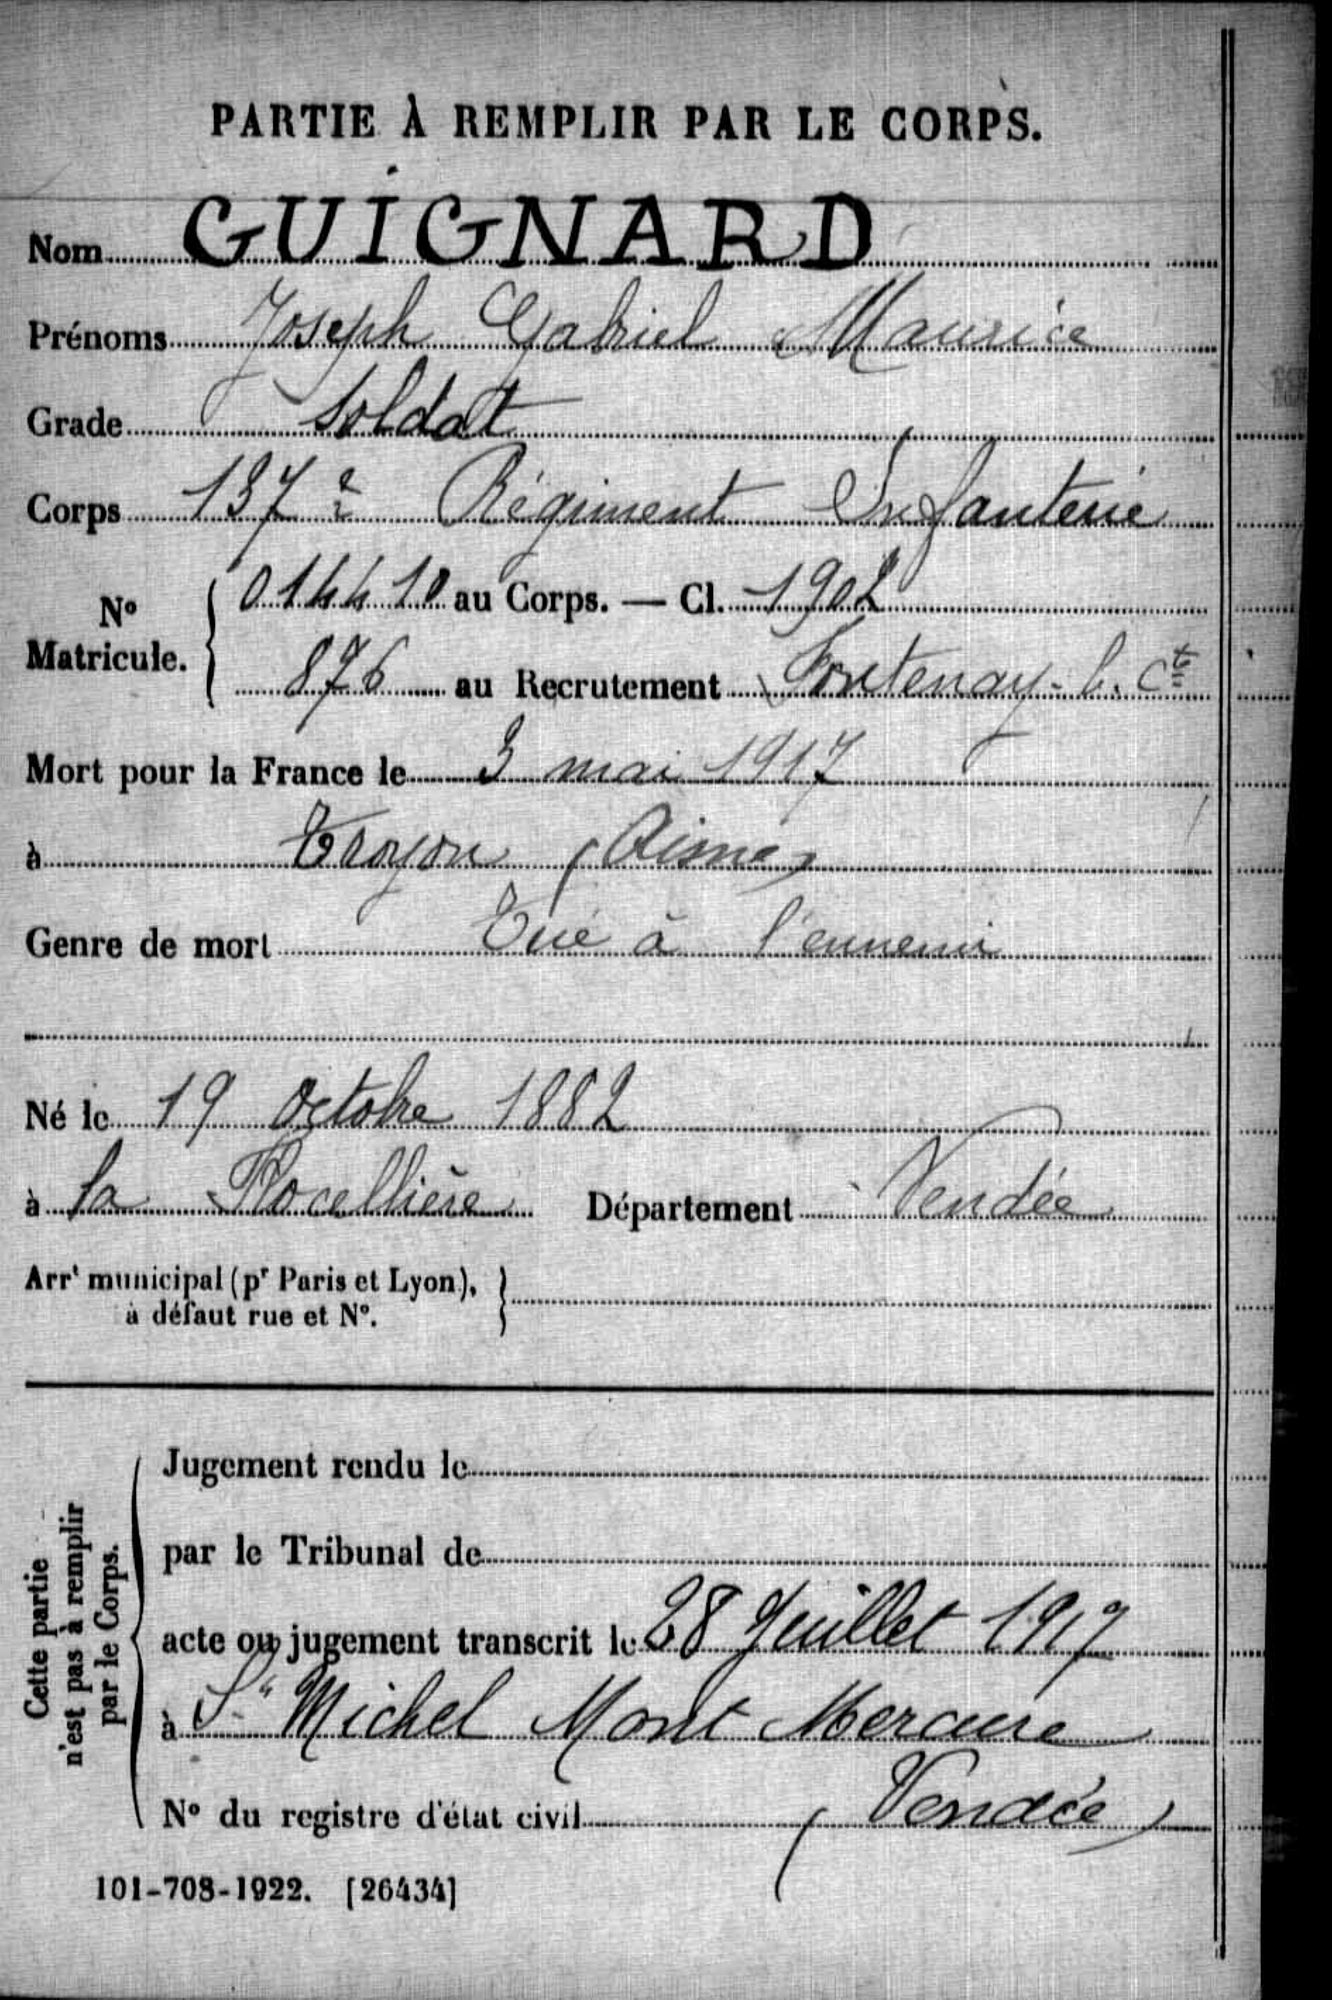 PARTIE À REMPLIR PAR LE CORPS.
Nom GUIGNARD
Prénoms Joseph Gabriel Maurice
Grade Soldat
Corps 137e Régiment Infanterie
No Matricule. { 014410 au Corps. — Cl. 1902
876 au Recrutement Fontenay-l. Cte
Mort pour la France le 3 mai 1917
à Troyon (Aisne)
Genre de mort Tué à l'ennemi
Né le 19 Octobre 1882
à La Flocellière Département Vendée
Arrt municipal (pr Paris et Lyon), }
à défaut rue et No.
Cette partie
n'est pas à remplir
par le Corps.
Jugement rendu le
par le Tribunal de
acte ou jugement transcrit le 28 Juillet 1917
à St Michel Mont Mercure
No du registre d'état civil (Vendée)
101-708-1922. [26434]